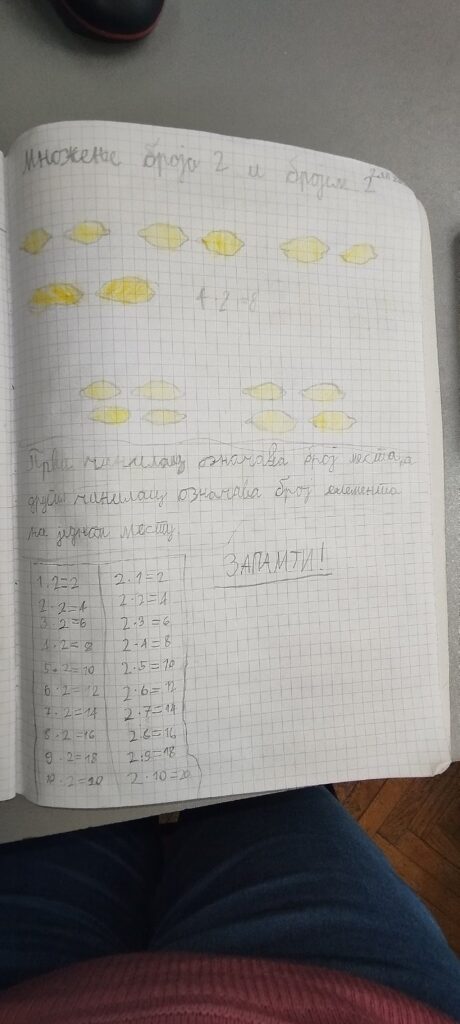 Множење броја 2 и бројем 2
4·2=8
Први чинилац означава број места, а
други чинилац означава број елемента
на једном месту.
ЗАПАМТИ!
1·2=2 2·1=2
2·2=4 2·2=4
3·2=6 2·3=6
4·2=8 2·4=8
5·2=10 2·5=10
6·2=12 2·6=12
7·2=14 2·7=14
8·2=16 2·8=16
9·2=18 2·9=18
10·2=20 2·10=20